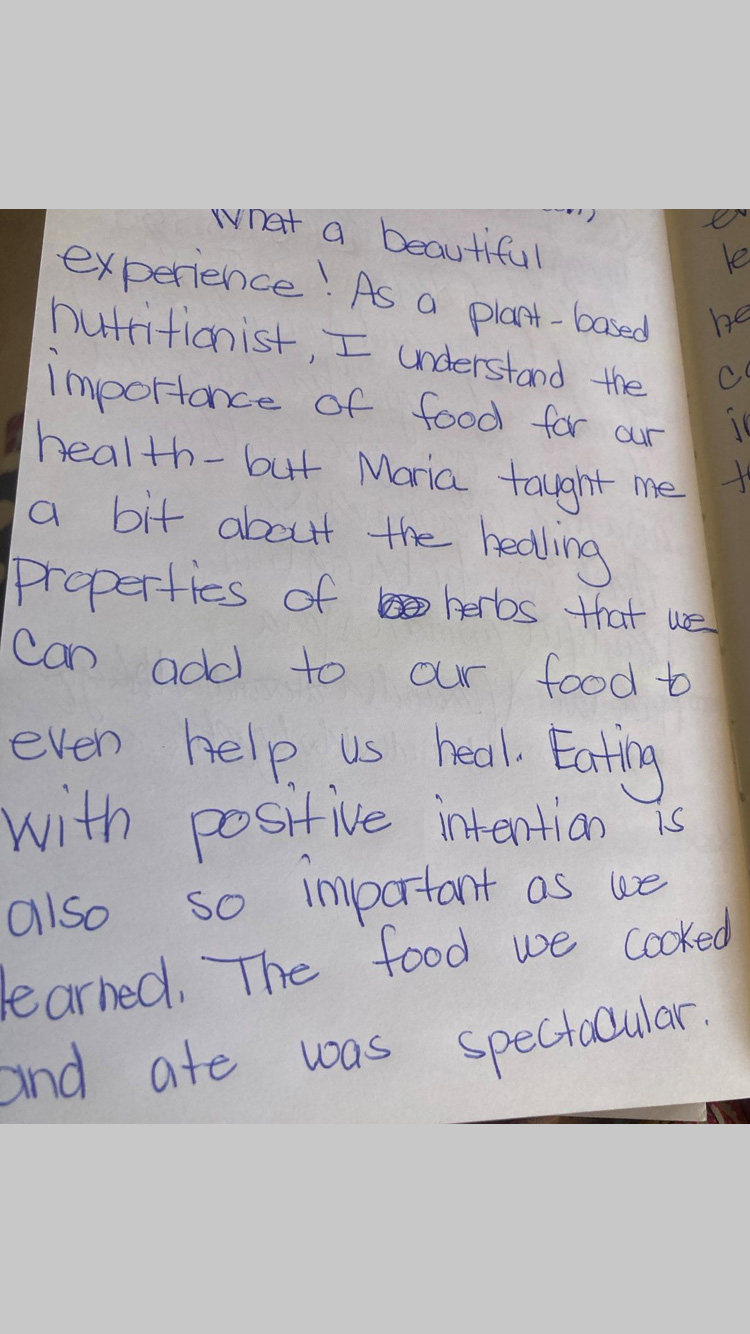 What a beautiful
experience! As a plant-based
nutritionist, I understand the
importance of food for our
health- but Maria taught me
a bit about the healing
properties of herbs that we
can add to our food to
even help us heal. Eating
with positive intention is
also so important as we
learned. The food we cooked
and ate was spectacular.